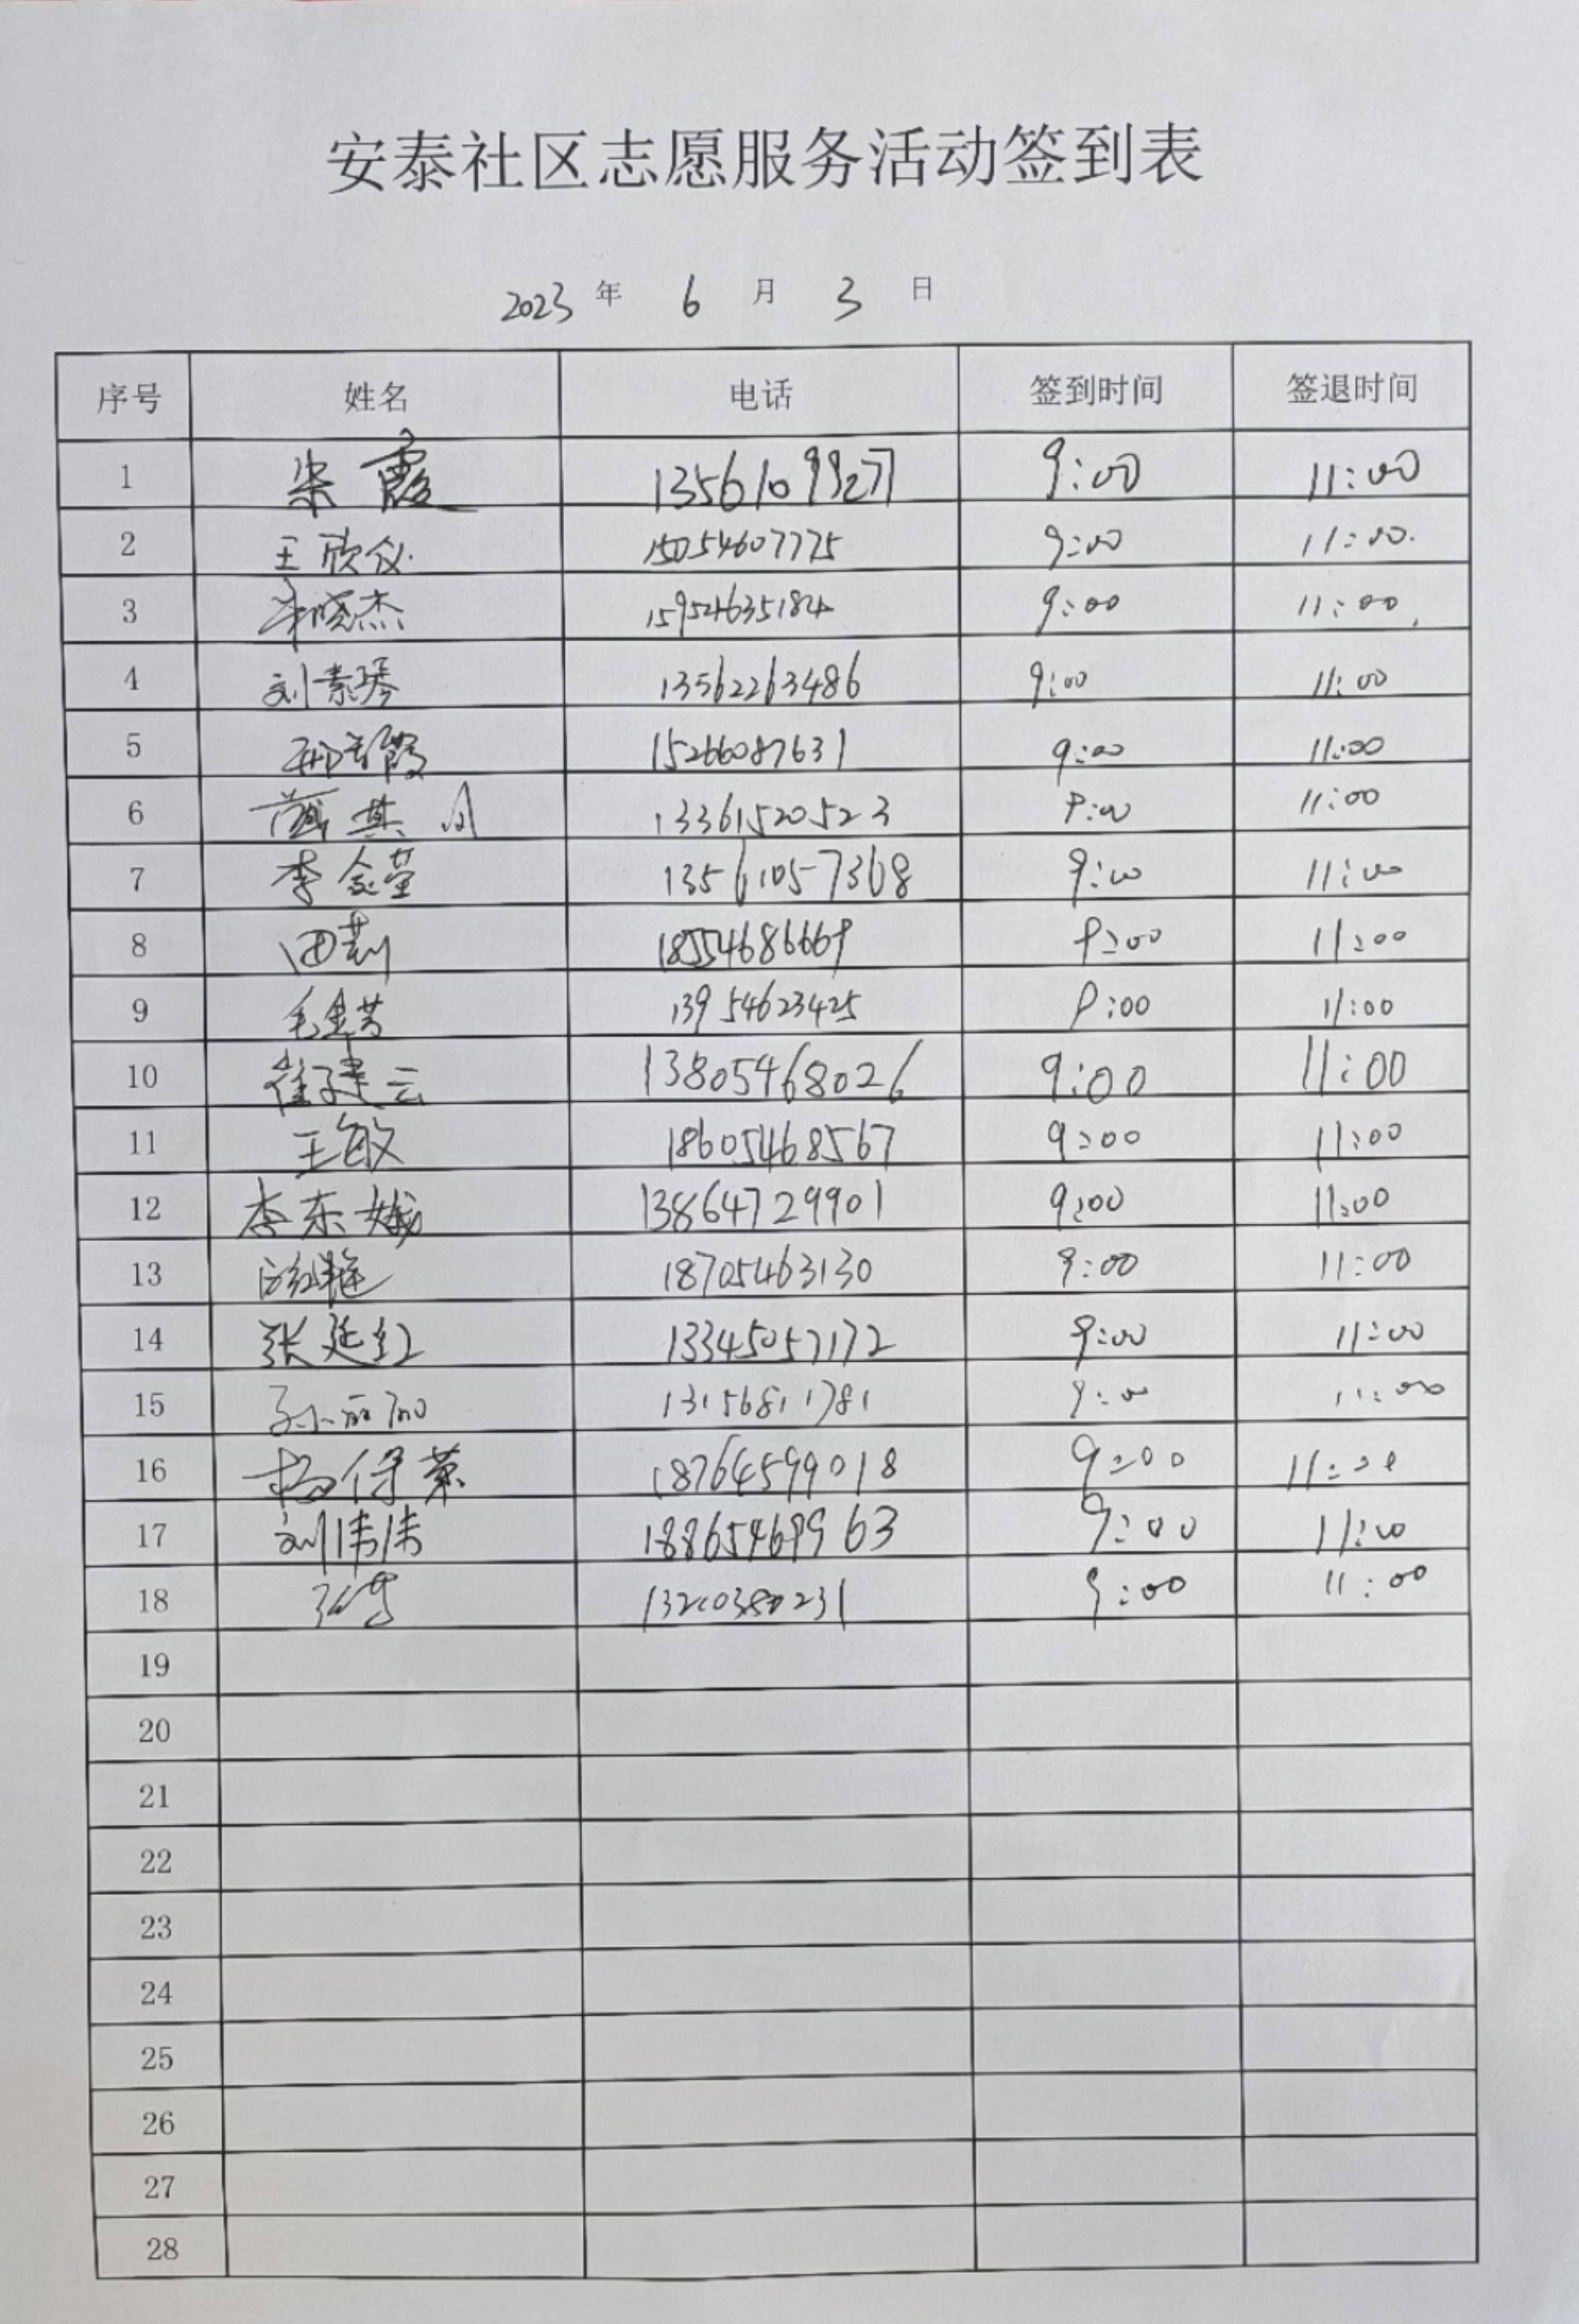 安泰社区志愿服务活动签到表
2023 年 6 月 3 日
序号 姓名 电话 签到时间 签退时间
1 荣霞 13561099277 9:00 11:00
2 王欣仪 15054607775 9:00 11:00.
3 晓杰 15954635184 9:00 11:00
4 刘素琴 13562263486 9:00 11:00
5 霞 15266087631 9:00 11:00
6 13361520523 9:00 11:00
7 李鑫莹 13561057368 9:00 11:00
8 田莉 18554686669 9:00 11:00
9 毛金芳 13954623425 9:00 11:00
10 崔建云 13805468026 9:00 11:00
11 王敏 18605468567 9:00 11:00
12 李东娥 13864729901 9:00 11:00
13 18705463130 9:00 11:00
14 张延红 13345057172 9:00 11:00
15 孙丽 13156811781 9:00 11:00
16 杨保荣 18764599018 9:00 11:00
17 刘伟伟 18865469963 9:00 11:00
18 9:00 11:00
19
20
21
22
23
24
25
26
27
28